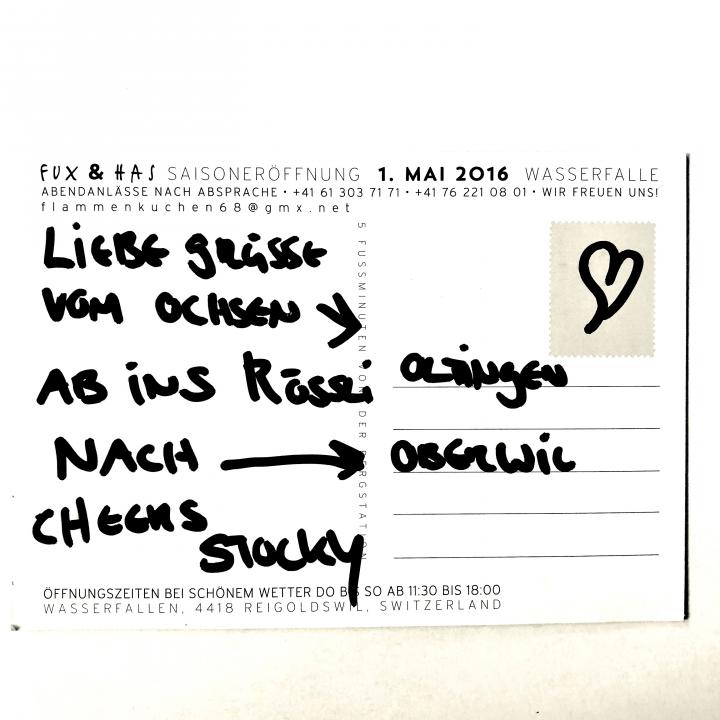 FUX & HAS SAISONERÖFFNUNG 1. MAI 2016 WASSERFALLE
ABENDANLÄSSE NACH ABSPRACHE • +41 61 303 71 71 • +41 76 221 08 01 • WIR FREUEN UNS!
flammenkuchen68@gmx.net
LIEBE GRÜSSE
VOM OCHSEN
OLTINGEN
AB INS RÖSSLI
NACH
OBERWIL
CHEERS
STOCKY
5 FUSSMINUTEN VON DER BERGSTATION
ÖFFNUNGSZEITEN BEI SCHÖNEM WETTER DO BIS SO AB 11:30 BIS 18:00
WASSERFALLEN, 4418 REIGOLDSWIL, SWITZERLAND